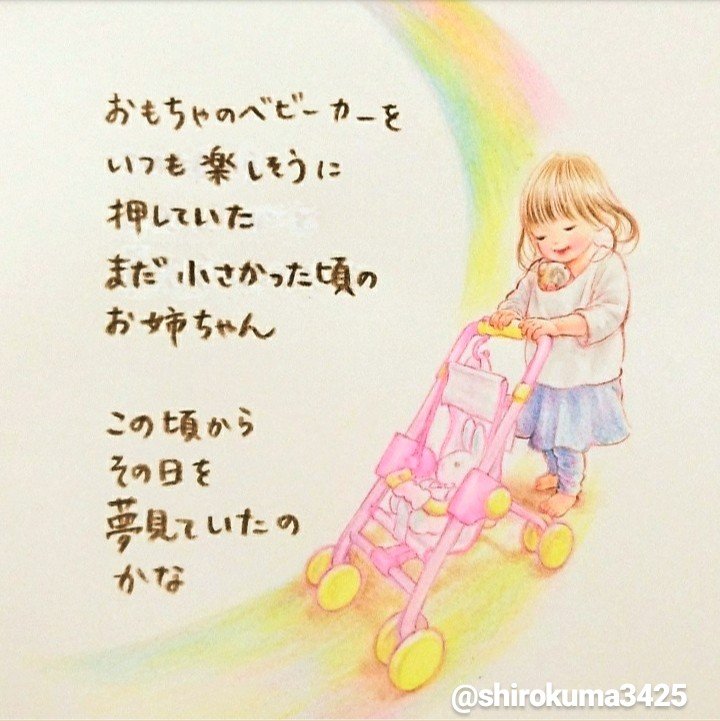 おもちゃのベビーカーを
いつも楽しそうに
押していた
まだ小さかった頃の
お姉ちゃん
この頃から
その日を
夢見ていたの
かな
@shirokuma3425